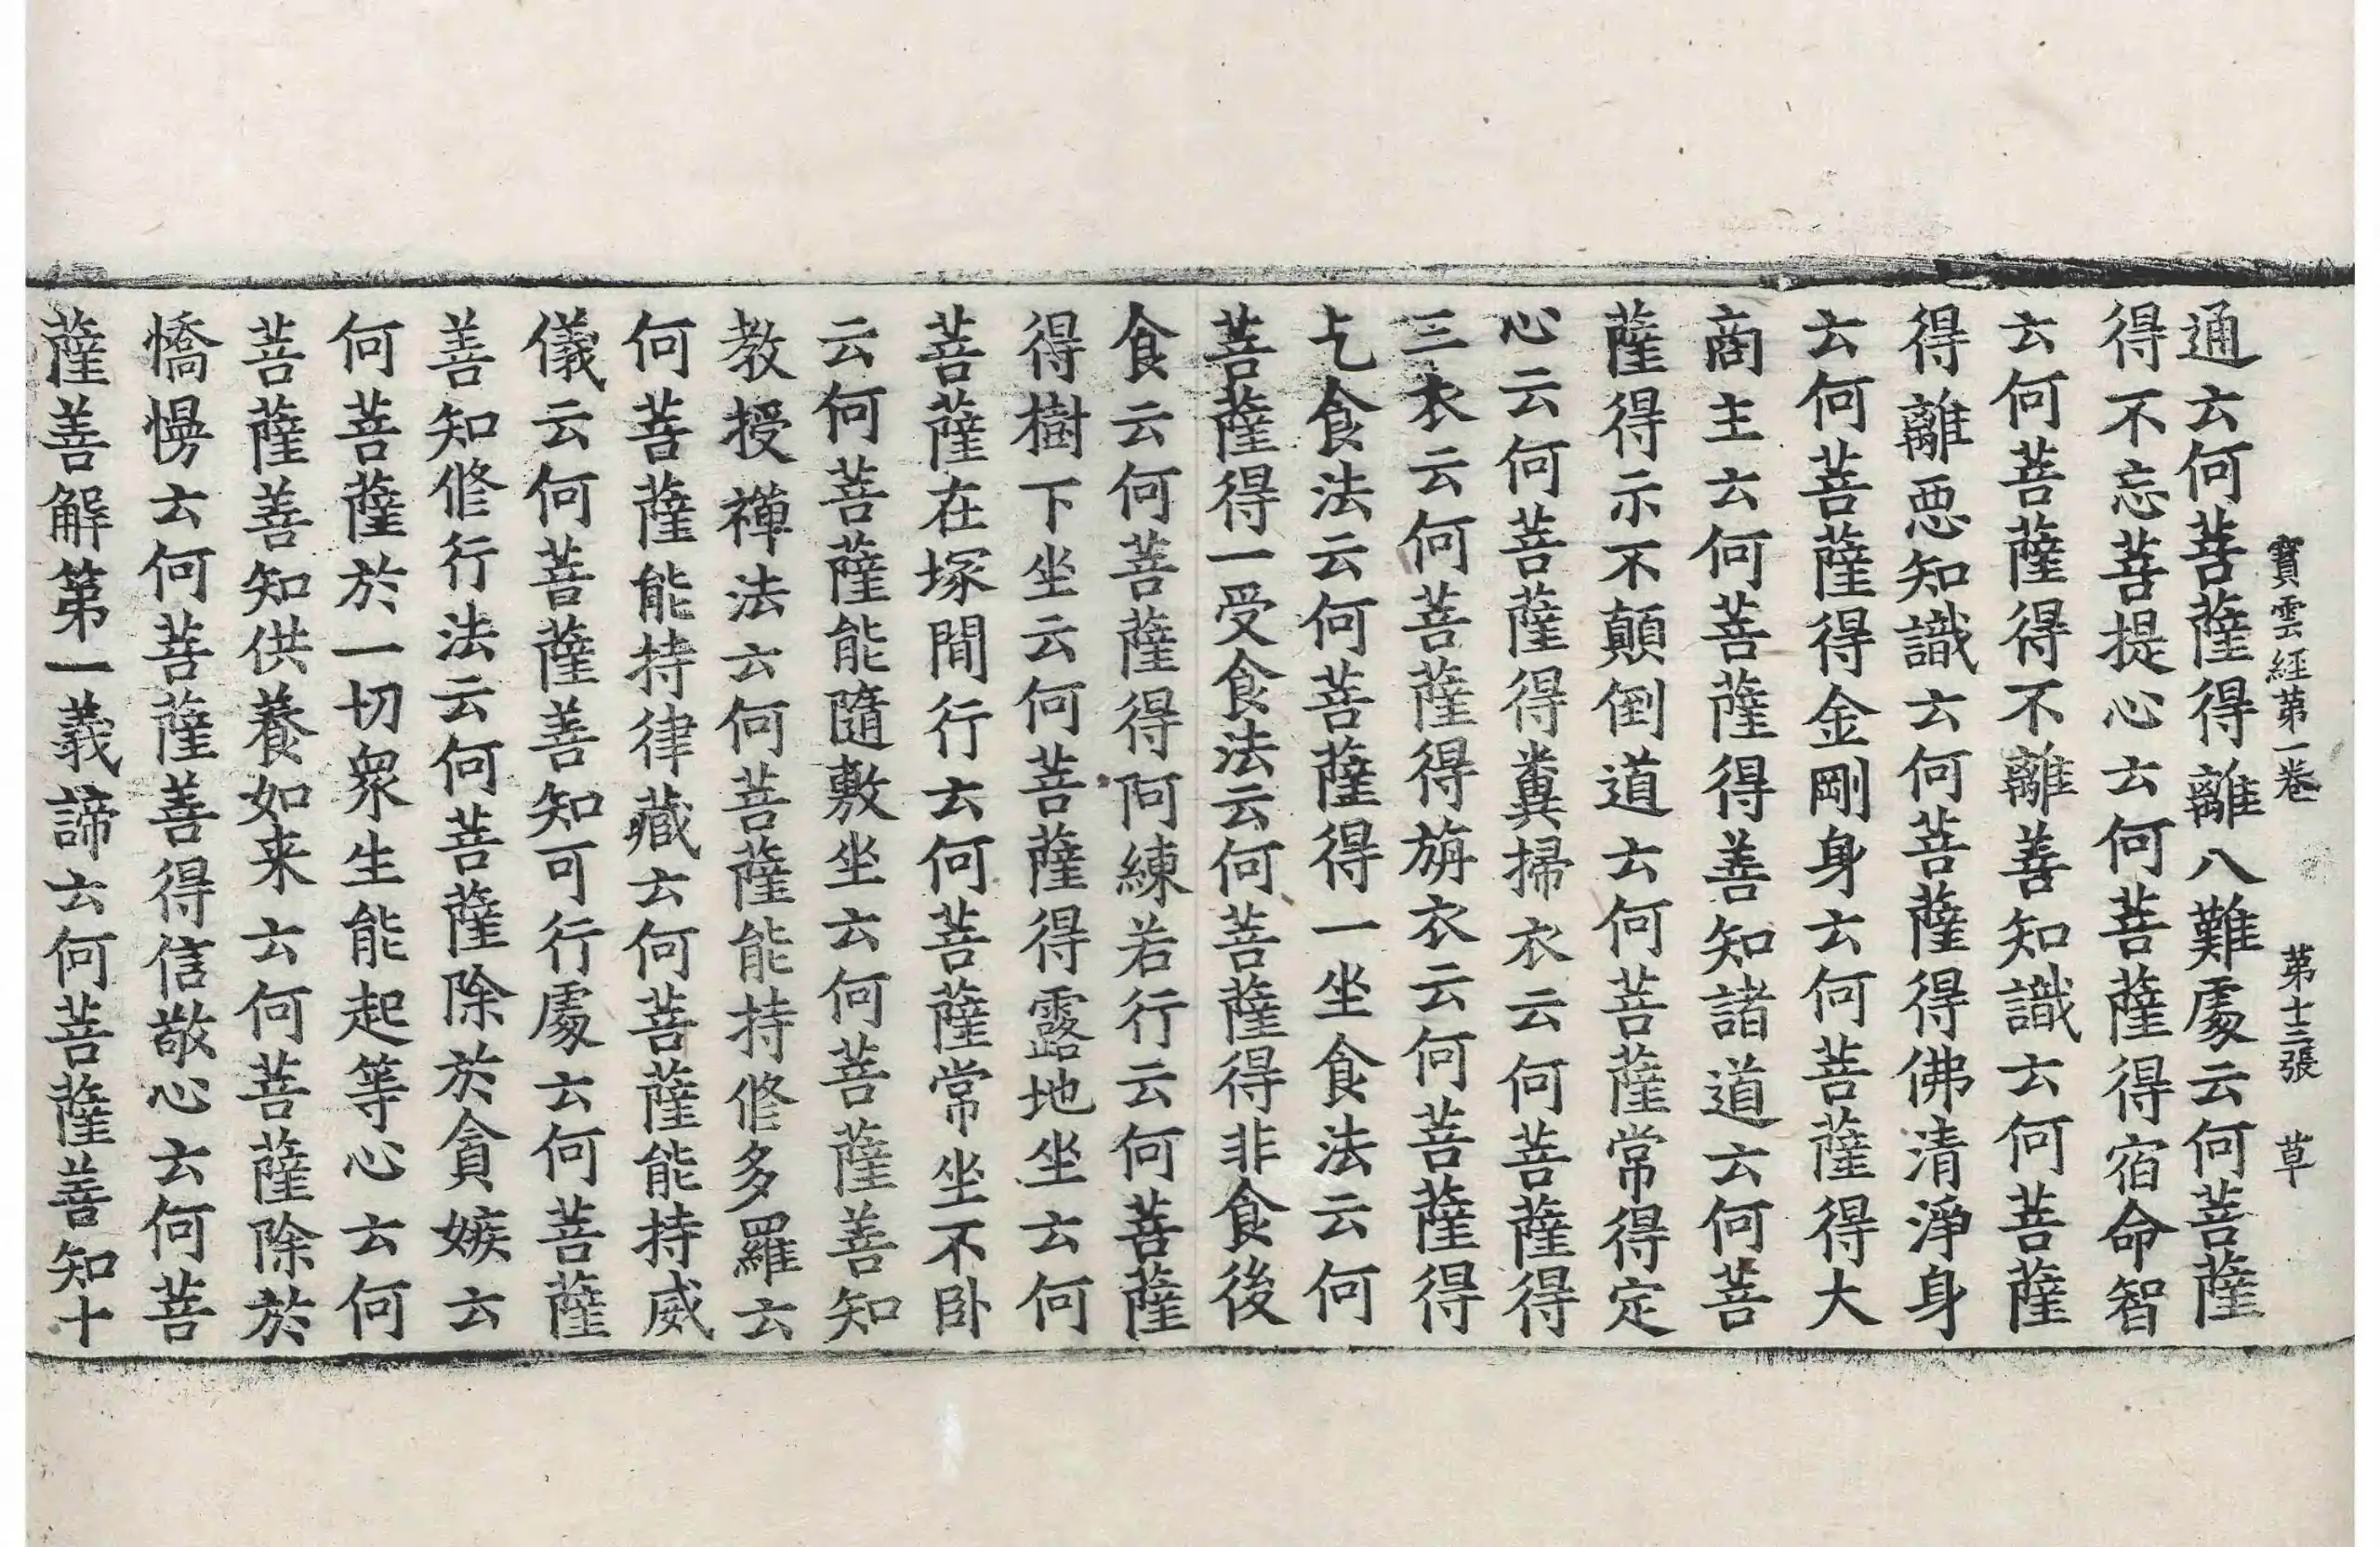 寶雲経第一卷 第十三張 草
通云何菩薩得離八難處云何菩薩
得不忘菩提心云何菩薩得宿命智
云何菩薩得不離善知識云何菩薩
得離惡知識云何菩薩得佛清淨身
云何菩薩得金剛身云何菩薩得大
商主云何菩薩得善知諸道云何菩
薩得示不顛倒道云何菩薩常得定
心云何菩薩得糞掃衣云何菩薩得
三衣云何菩薩得旃衣云何菩薩得
乞食法云何菩薩得一坐食法云何
菩薩得一受食法云何菩薩得非食後
食云何菩薩得阿練若行云何菩薩
得樹下坐云何菩薩得露地坐云何
菩薩在塚間行云何菩薩常坐不卧
云何菩薩能隨敷坐云何菩薩善知
教授禪法云何菩薩能持修多羅云
何菩薩能持律藏云何菩薩能持威
儀云何菩薩善知可行處云何菩薩
善知修行法云何菩薩除於貪嫉云
何菩薩於一切衆生能起等心云何
菩薩善知供養如来云何菩薩除於
憍慢云何菩薩善得信敬心云何菩
薩善解第一義諦云何菩薩善知十